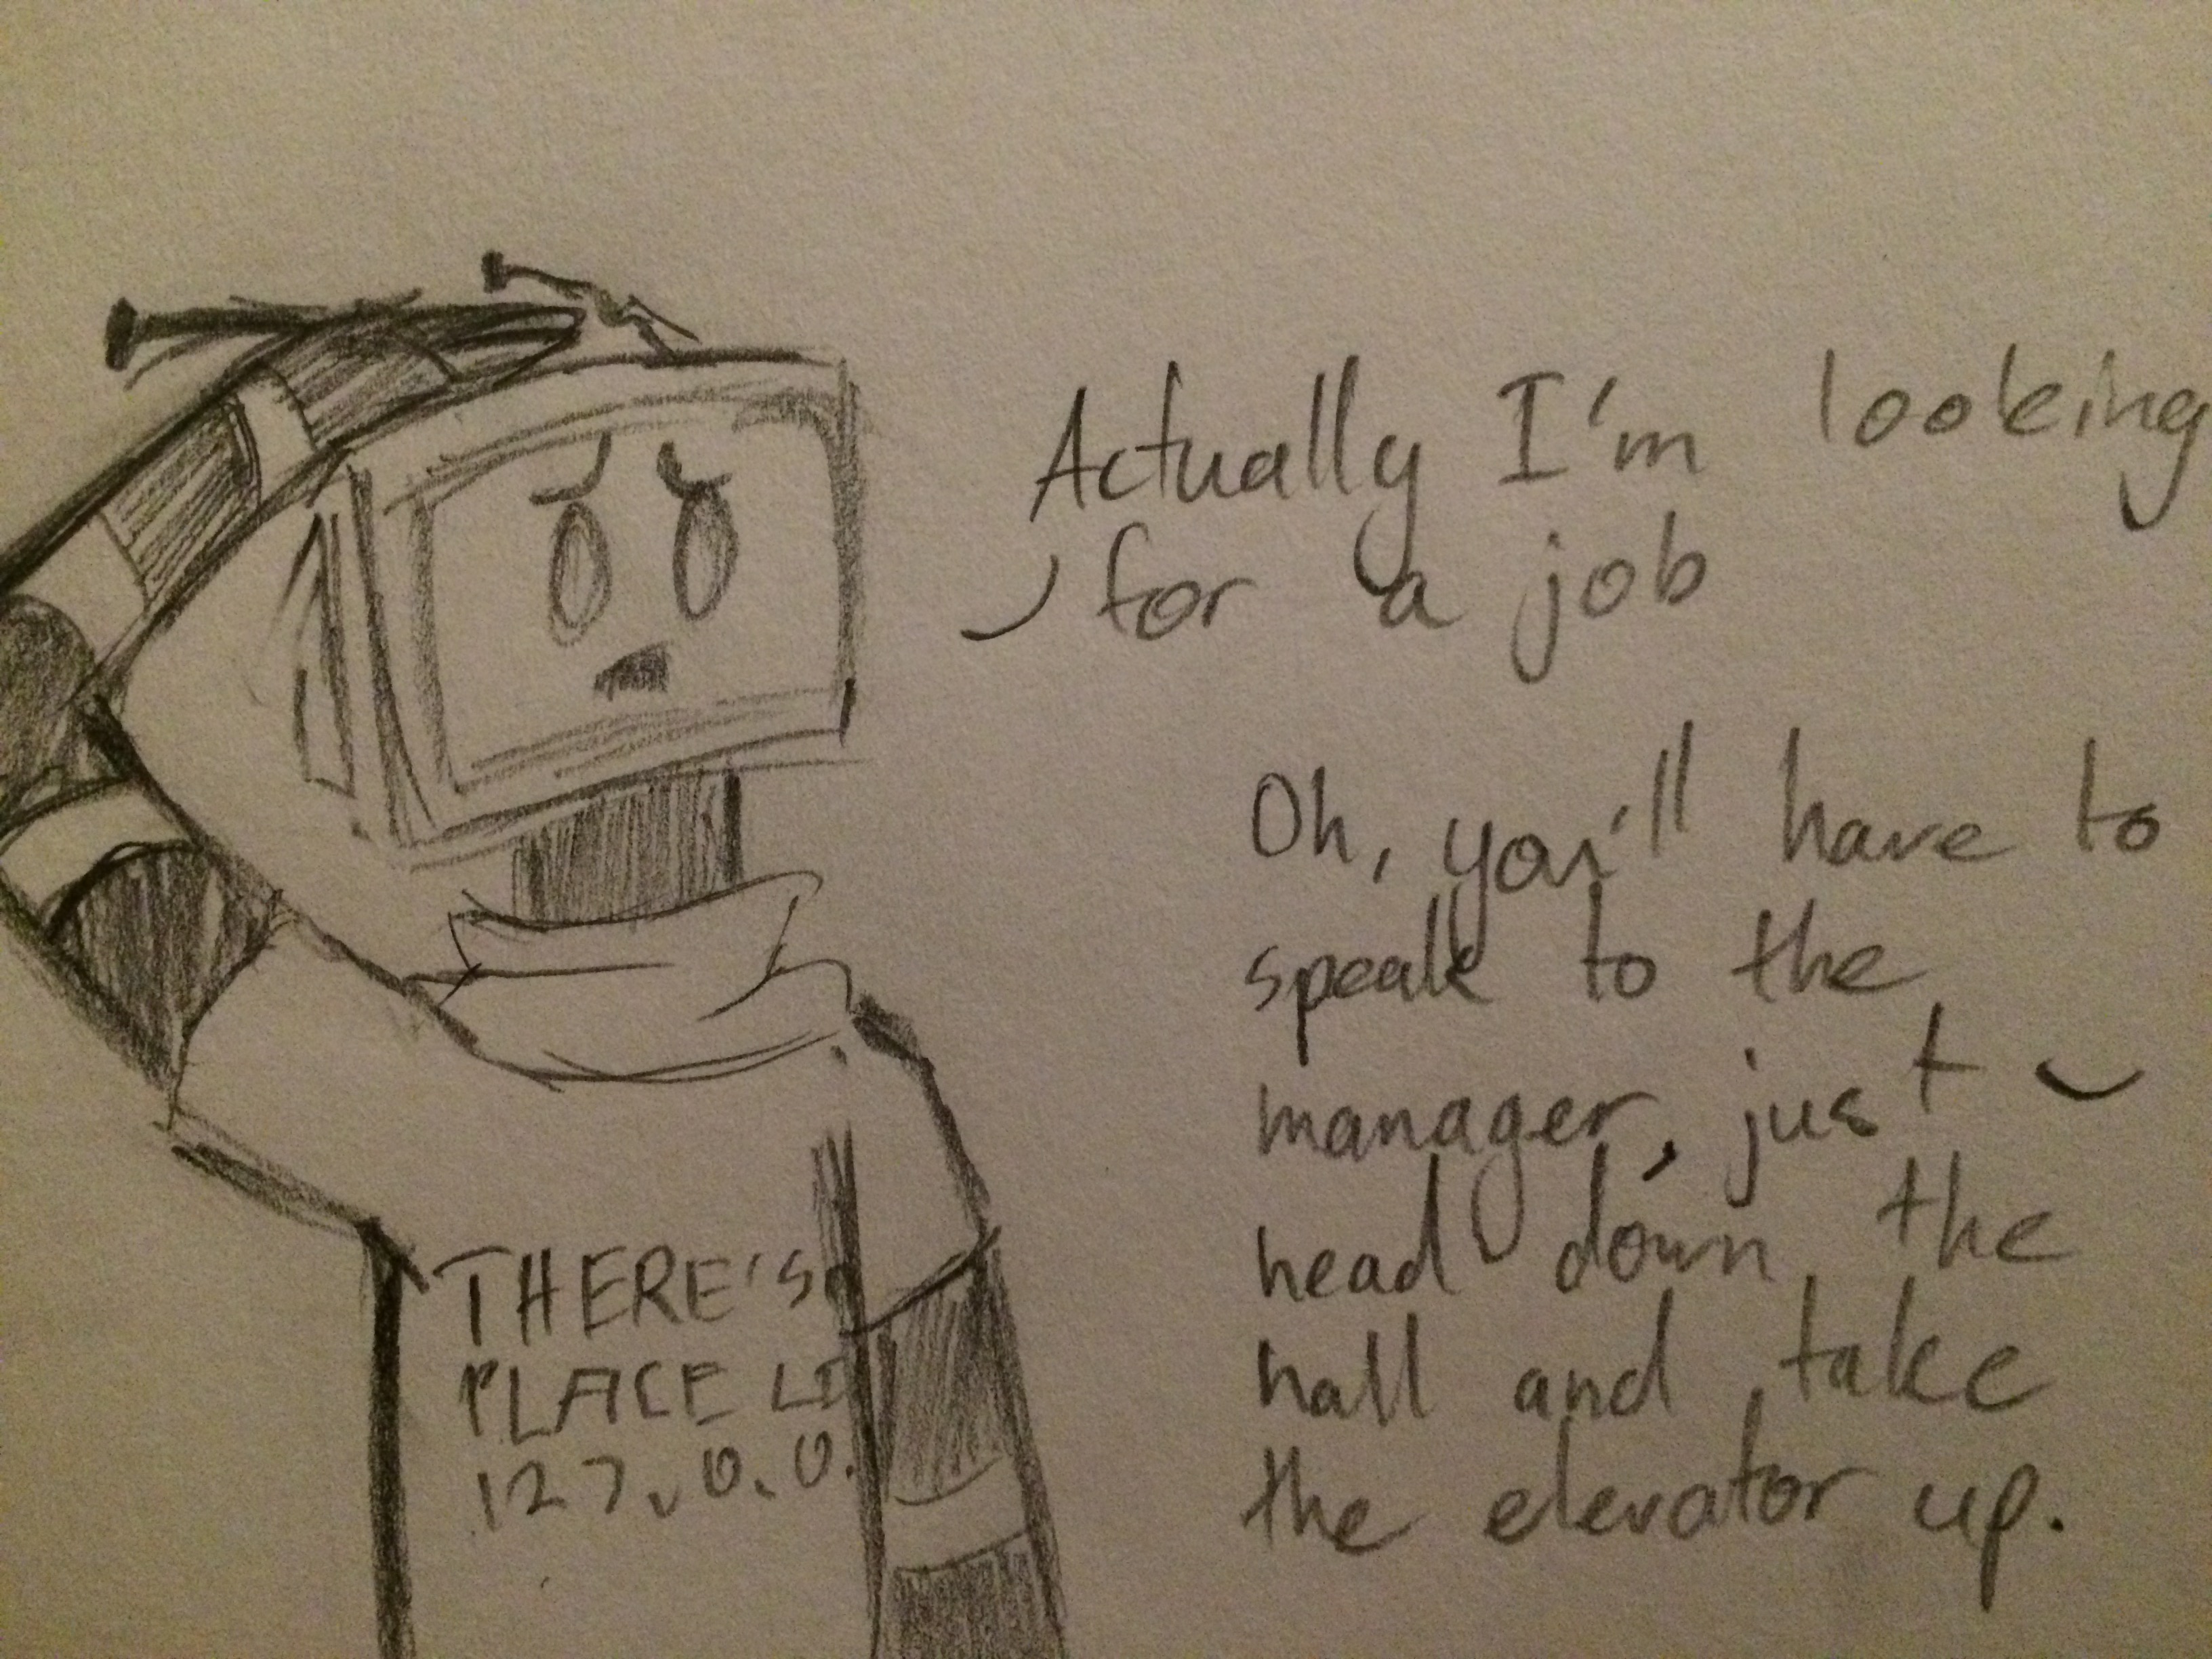 Actually I'm looking
for a job
Oh, you'll have to
speak to the
manager, just
head down the
hall and take
the elevator up.
THERE'S
PLACE LI
127.0.0.